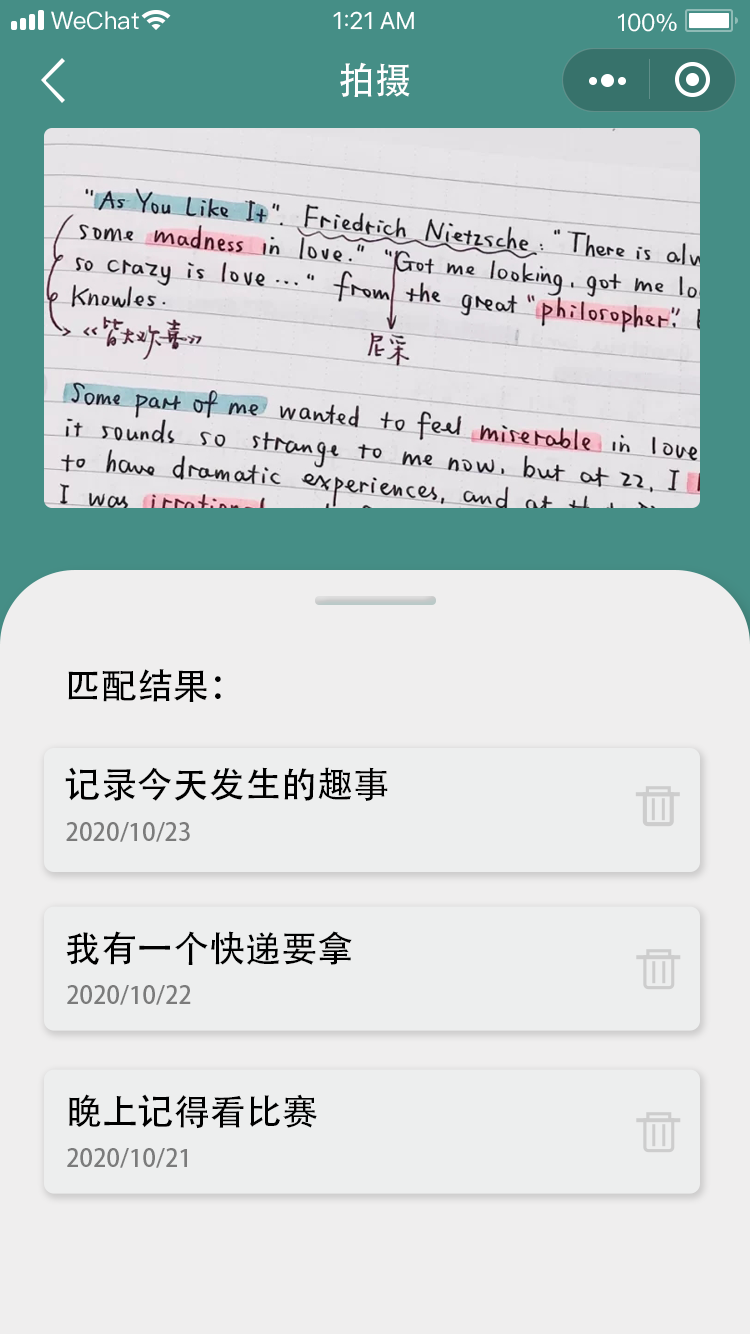 WeChat 1:21 AM 100%
拍摄
"As You Like It". Friedrich Nietzsche: "There is alw
some madness in love." "Got me looking, got me lo
so crazy is love ..." from the great "philosopher".
Knowles.
《皆大欢喜》
尼采
Some part of me wanted to feel miserable in love
it sounds so strange to me now, but at 22, I
to have dramatic experiences, and at
I was irrational
匹配结果：
记录今天发生的趣事
2020/10/23
我有一个快递要拿
2020/10/22
晚上记得看比赛
2020/10/21